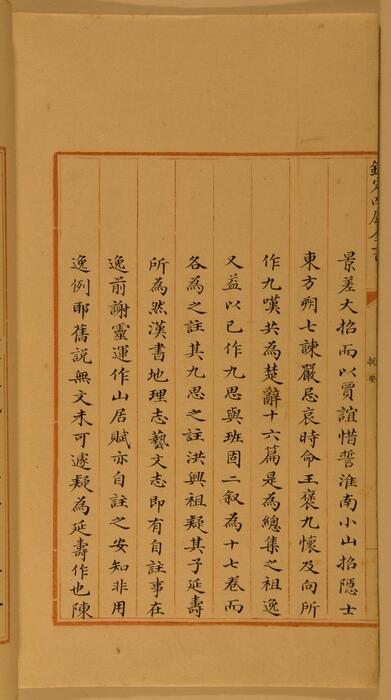 欽定四庫全書
提要
景差大招而以賈誼惜誓淮南小山招隱士
東方朔七諫嚴忌哀時命王褒九懷及向所
作九嘆共為楚辭十六篇是為總集之祖逸
又益以已作九思與班固二叙為十七卷而
各為之註其九思之註洪興祖疑其子延壽
所為然漢書地理志藝文志即有自註事在
逸前謝靈運作山居賦亦自註之安知非用
逸例耶舊說無文未可遽疑為延壽作也陳